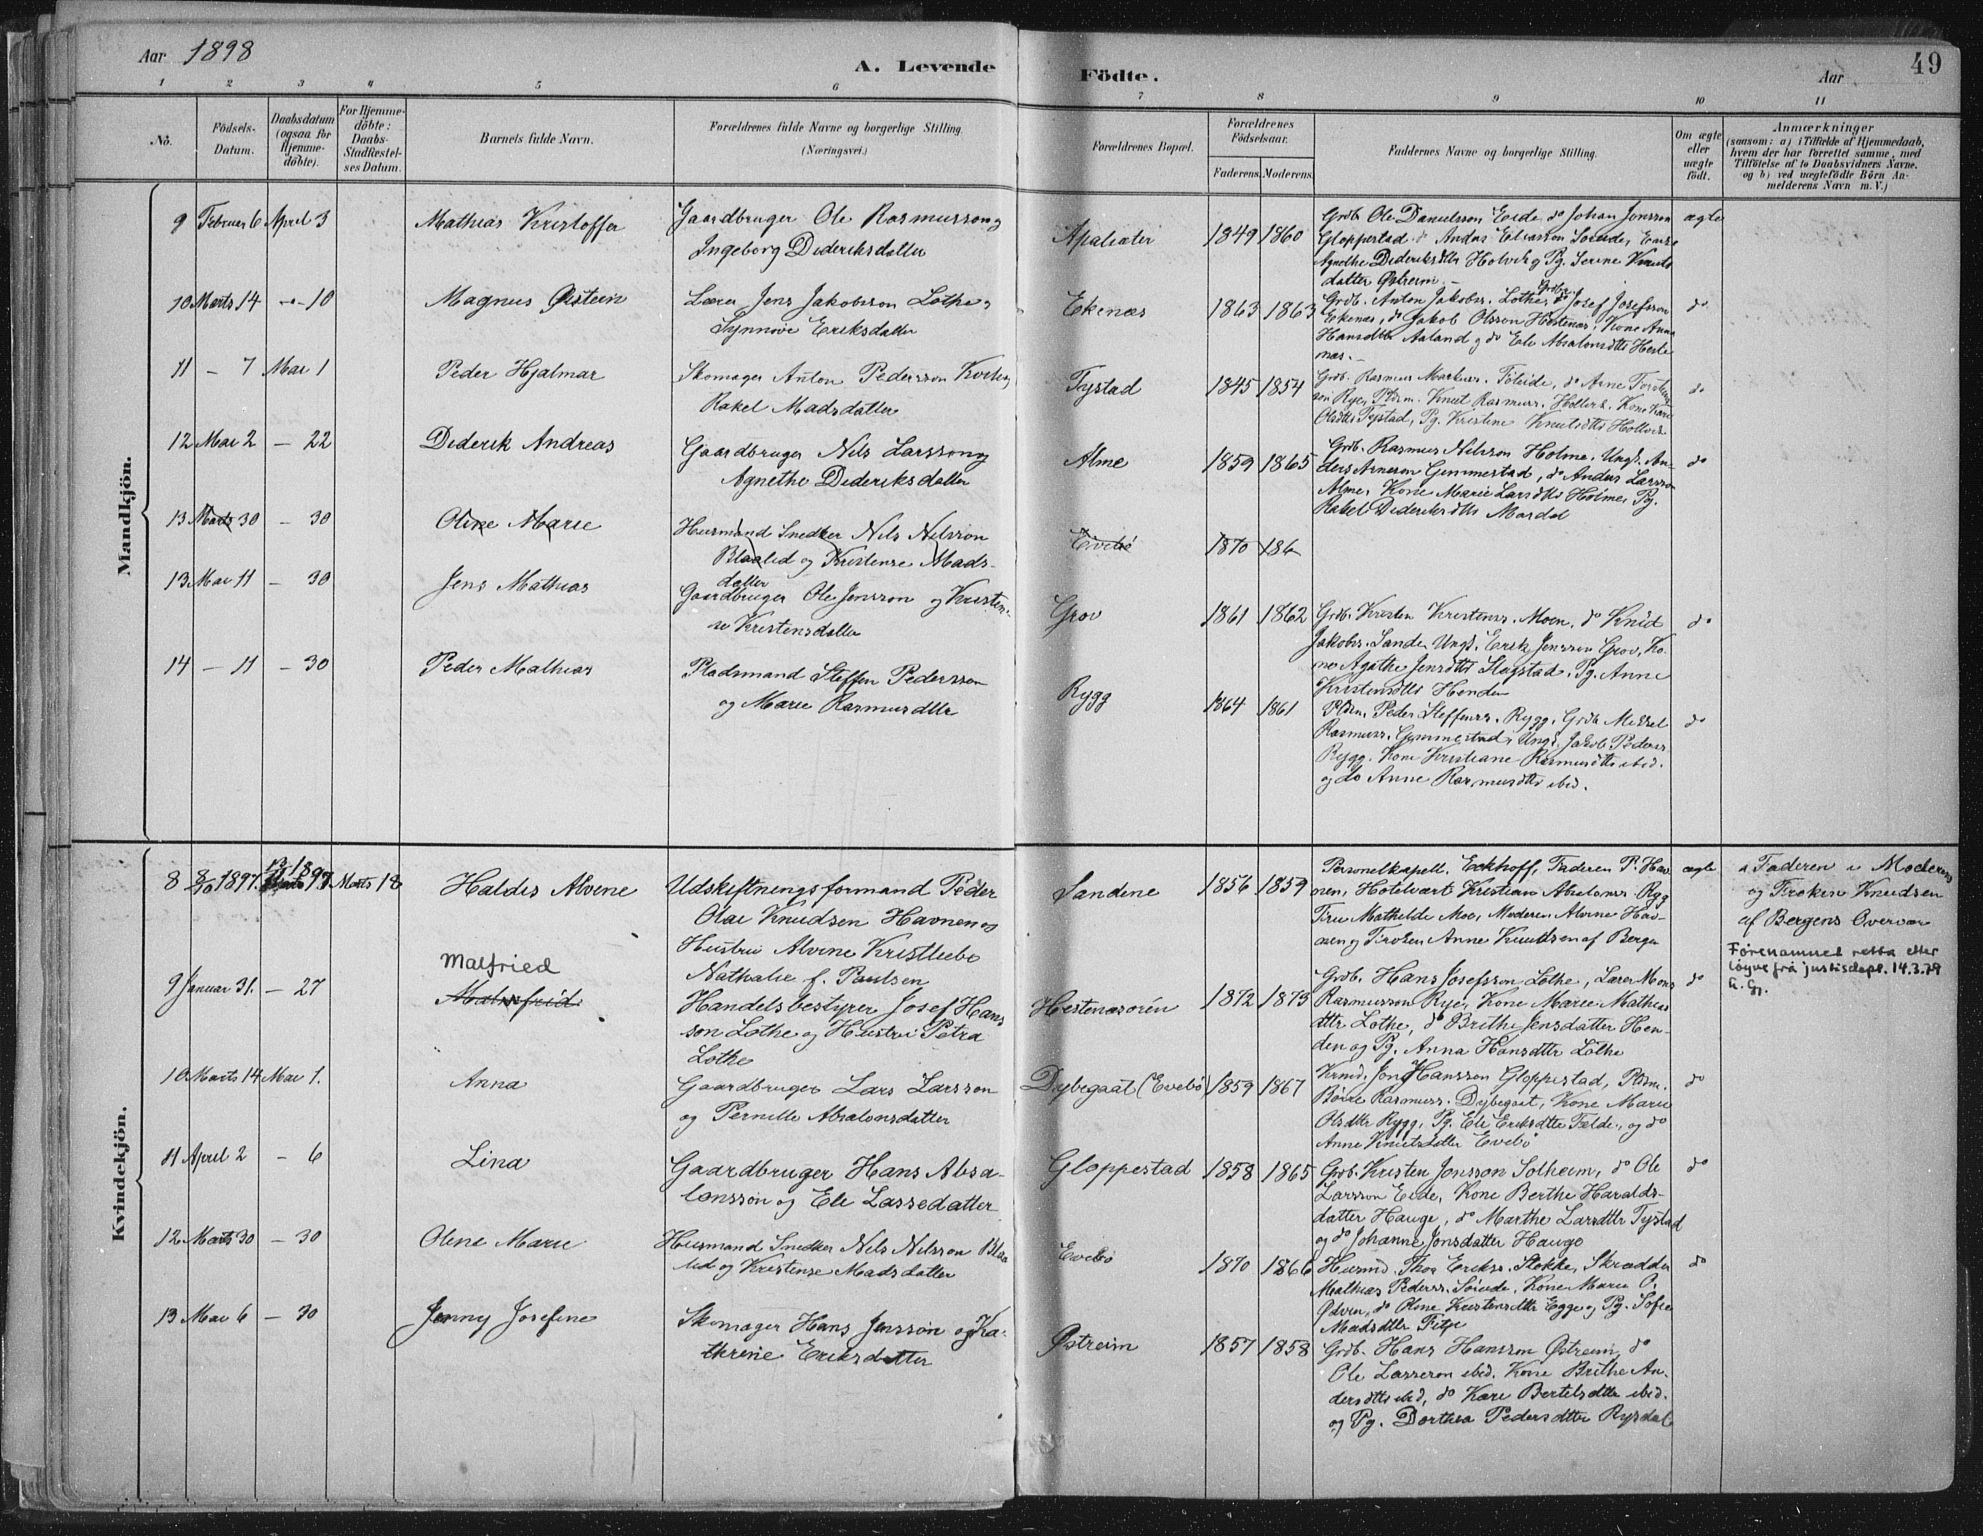 Aar 1898
A. Levende Födte.
Aar
49
1 2 3 4 5 6 7 8 9 10 11
No.
Födsels-Datum.
Daabsdatum (ogsaa for Hjemme-döbte).
For Hjemme-döbte: Daabs-Stadfæstel-ses Datum.
Barnets fulde Navn.
Forældrenes fulde Navne og borgerlige Stilling. (Næringsvei.)
Forældrenes Bopæl.
Forældrenes Födselsaar.
Faderens. Moderens.
Faddernes Navne og borgerlige Stilling.
Om ægte eller uægte födt.
Anmærkninger
(saasom: a) i Tilfælde af Hjemmedaab,
hvem der har forrettet samme, med
Tilföielse af to Daabsvidners Navne,
og b) ved uægtefödte Börn An-
melderens Navn m. V.)
Mandkjön.
9 Februar 6 April 3 Mathias Kristoffer
Gaardbruger Ole Rasmusson og
Ingeborg Dideriksdatter
Apalsæter 1849 1860
Grdb. Ole Danielsson Eide, do Johan Jonsson
Gloppestad, do Andas Eliasson Soreide,
Agnethe Dideriksdtter Holvik og Pg. Serine Knuts
datter Østreim. -
ægte
10 Marts 14 - 10 Magnus Øistein
Lærer Jens Jakobsson Lothe og
Synnøve Eriksdatter
Ekenæs 1863 1863
Grdb. Anton Jakobss. Lothe, Grdbr. Josef Josefsson
Ekenæs, do Jakob Olsson Hestenæs, Kone Anna
Hansdtter Aaland og do Eli Absalonsdtter Heste
næs. -
do
11 - 7 Mai 1 Peder Hjalmar
Skomager Anton Pedersson og
Rakel Madsdatter
Tystad 1845 1854
Grdb. Rasmus Markuss. Føleide, do Arne
son Rye, Pldsm. Knut Rasmuss. Kone
Olsdtter Tystad, Pg. Kristine Knutsdtter
do
12 Mai 2 - 22 Diderik Andreas
Gaardbruger Nils Larsson og
Agnethe Dideriksdatter
Alme 1859 1865
Grdb. Rasmus Nilsson Holme, Ungk. An-
ders Arneson Gimmestad, do Anders Larsson
Alme, Kone Marie Larsdtter Holme, Pg.
Rakel Dideriksdtter Mardal
do
13 Marts 30 - 30 Oline Marie
Husmand Snedker Nils Nilsson
Blaalid og Kristense Mads-
datter
Evebø 1870 186
13 Mai 11 - 30 Jens Mathias
Gaardbruger Ole Jonsson og Kristen-
se Kristensdatter
Grov 1861 1862
Grdb. Kristen Kristenss. Moen, do Knud
Jakobss. Sande, Ungk. Erik Jensson Grov, Ko-
ne Agathe Jensdtter Slagstad, Pg. Anne
Kristensdtter Henden
do
14 - 11 - 30 Peder Mathias
Pladsmand Steffen Pedersson
og Marie Rasmusdtter
Rygg 1864 1861
Pldsm. Peder Steffenss. Rygg, Grdb. Mikkel
Rasmuss. Gimmestad, Ungk. Jakob Pederss.
Rygg. Kone Kristiane Rasmusdtter ibid.
og do Anne Rasmusdtter ibid.
do
Kvindekjön.
8 8/10 1897. 1897 Marts 18 Haldis Alvine
Udskiftningsformand Peder
Olai Knudsen Havnen og
Hustru Alvine Kristliebe
Nathalie f. Paulsen
Sandene 1856 1859
Personelkapell. Eckhoff, Faderen P. Hav-
nen, Hotelvært Kristian Absalonss. Rygg
Fru Mathilde Moe, Moderen Alvine Hav-
nen og Frøken Anne Knudsen af Bergen
ægte
Faderen i Moderens
og Frøken Knudsen
af Bergens Overvær
9 Januar 31. - 27 Malfried
Malmfrid
Handelsbestyrer Josef Hans
son Lothe og Hustru Petra
Lothe
Hestenæsøren 1872 1875
Grdb. Hans Josefsson Lothe, Lærer Mons
Rasmusson Rye, Kone Marie Mathias
dtter Lothe, do Brithe Jensdatter Hen-
den og Pg. Anna Hansdtter Lothe
do
Førenamnet retta etter
løyve frå justisdept. 14.3.79
10 Marts 14 Mai 1. Anna
Gaardbruger Lars Larsson
og Pernille Absalonsdatter
Dybegaat (Evebø) 1859 1867
Krmd. Jon Hansson Gloppestad, Pldsm.
Børre Rasmuss. Dybegaat, Kone Marie
Olsdtter Rygg, Pg. Eli Eriksdtter Fælde, og do
Anne Knutsdatter Evebø
do
11 April 2 - 6 Lina
Gaardbruger Hans Absa-
lonssøn og Eli Lassedatter
Gloppestad 1858 1865
Grdb. Kristen Jonsson Solheim, do Ole
Larsson Eide, Kone Berthe Haralds-
datter Hauge, do Marthe Larsdtter Tystad
og do Johanne Jonsdatter Hauge
do
12 Marts 30 - 30 Oline Marie
Husmand Snedker Nils Nilsson Blaa
lid og Kristense Madsdatter
Evebø 1870 1866
Husmd. Thor Erikss. Stokke, Skrædder
Mathias Pederss. Søreide, Kone Marie O.
Ødven, do Oline Kristensdtter Egge og Pg. Sofie
Madsdtter Fitje
do
13 Mai 6 - 30 Jenny Josefine
Skomager Hans Jensson og Ka-
thrine Eriksdatter
Østreim 1857 1858
Grdb. Hans Hansson Østreim, do
Ole Lasseson ibid. Kone Brithe An-
dersdtter ibid, do Kari Bertelsdtter ibid.
og Pg. Dorthea Pedersdtter Rysdal